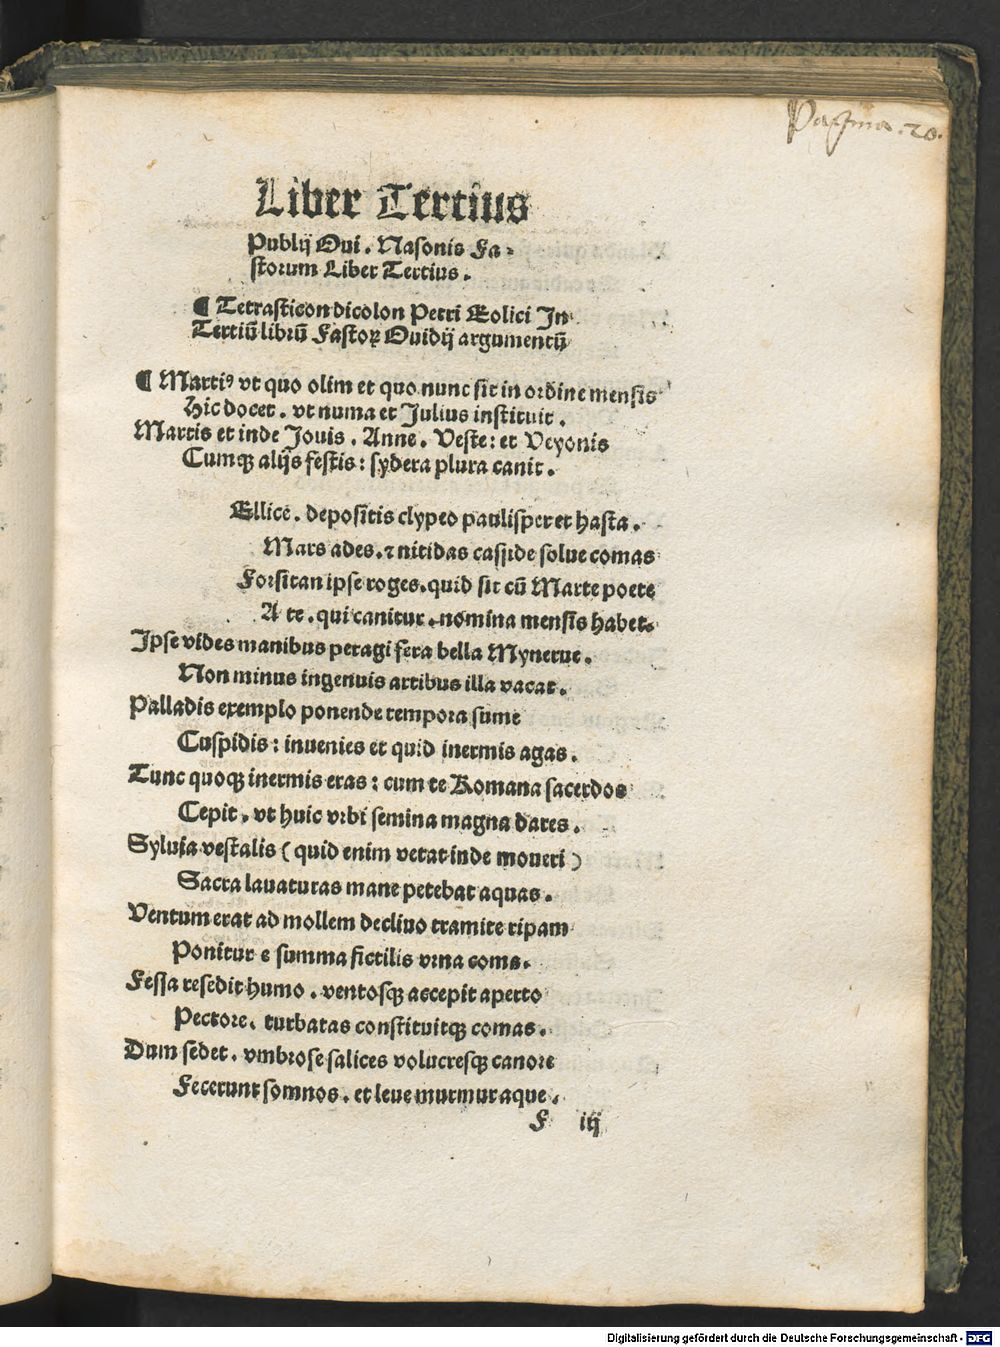 Pagina .20.
Liber Tertius
Publij Oui. Nasonis Fa-
storum Liber Tertius.
¶ Tetrasticon dicolon Petri Eolici In
Tertiū librū Fastoꝝ Ouidij argumentū
¶ Martiꝰ vt quo olim et quo nunc sit in ordine mensis
Hic docet. vt numa et Julius instituit.
Martis et inde Jouis. Anne. Veste: et Veyonis
Cumqꝫ alijs festis: sydera plura canit.
Ellice. depositis clypeo paulisper et hasta.
Mars ades. ⁊ nitidas casside solue comas
Forsitan ipse roges. quid sit cū Marte poete
A te. qui canitur. nomina mensis habet.
Ipse vides manibus peragi fera bella Mynerue.
Non minus ingenuis artibus illa vacat.
Palladis exemplo ponende tempora sume
Cuspidis: inuenies et quid inermis agas.
Tunc quoqꝫ inermis eras: cum te Romana sacerdos
Cepit. vt huic vrbi semina magna dares.
Syluia vestalis (quid enim vetat inde moueri)
Sacra lauaturas mane petebat aquas.
Ventum erat ad mollem decliuo tramite ripam
Ponitur e summa fictilis vrna coma.
Fessa resedit humo. ventosqꝫ accepit aperto
Pectore. turbatas constituitqꝫ comas.
Dum sedet. vmbrose salices volucresqꝫ canore
Fecerunt somnos. et leue murmur aque.
F iij
Digitalisierung gefördert durch die Deutsche Forschungsgemeinschaft - DFG